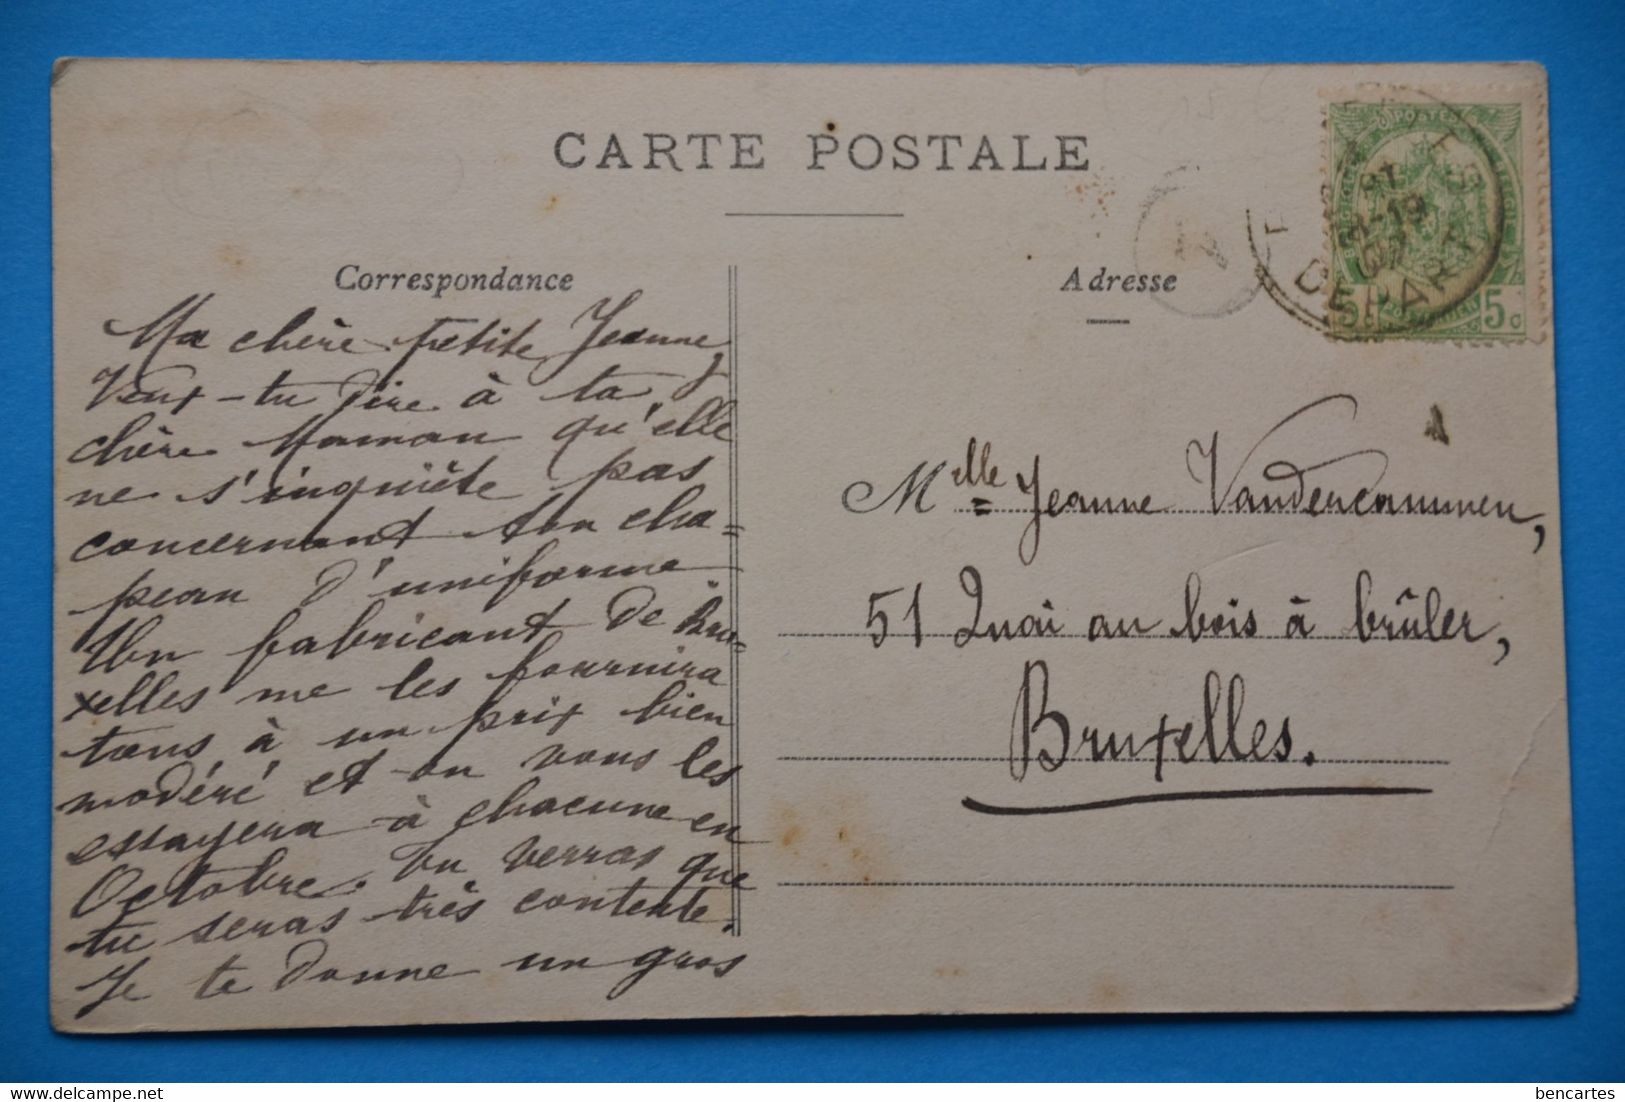 CARTE POSTALE
Correspondance
Ma chère petite Jeanne,
Veux-tu dire à ta
chère Maman qu'elle
ne s'inquiète pas
concernant ton cha=
peau d'uniforme
Un fabricant de Bru-
xelles me les fournira
tous à un prix bien
modéré et on vous les
essayera à chacune en
Octobre. Tu verras que
tu seras très contente.
Je te donne un gros
Adresse
Mlle Jeanne Vandercammen,
51 Quai au bois à brûler,
Bruxelles.
POSTES
5c 5c
DEPART
bencartes